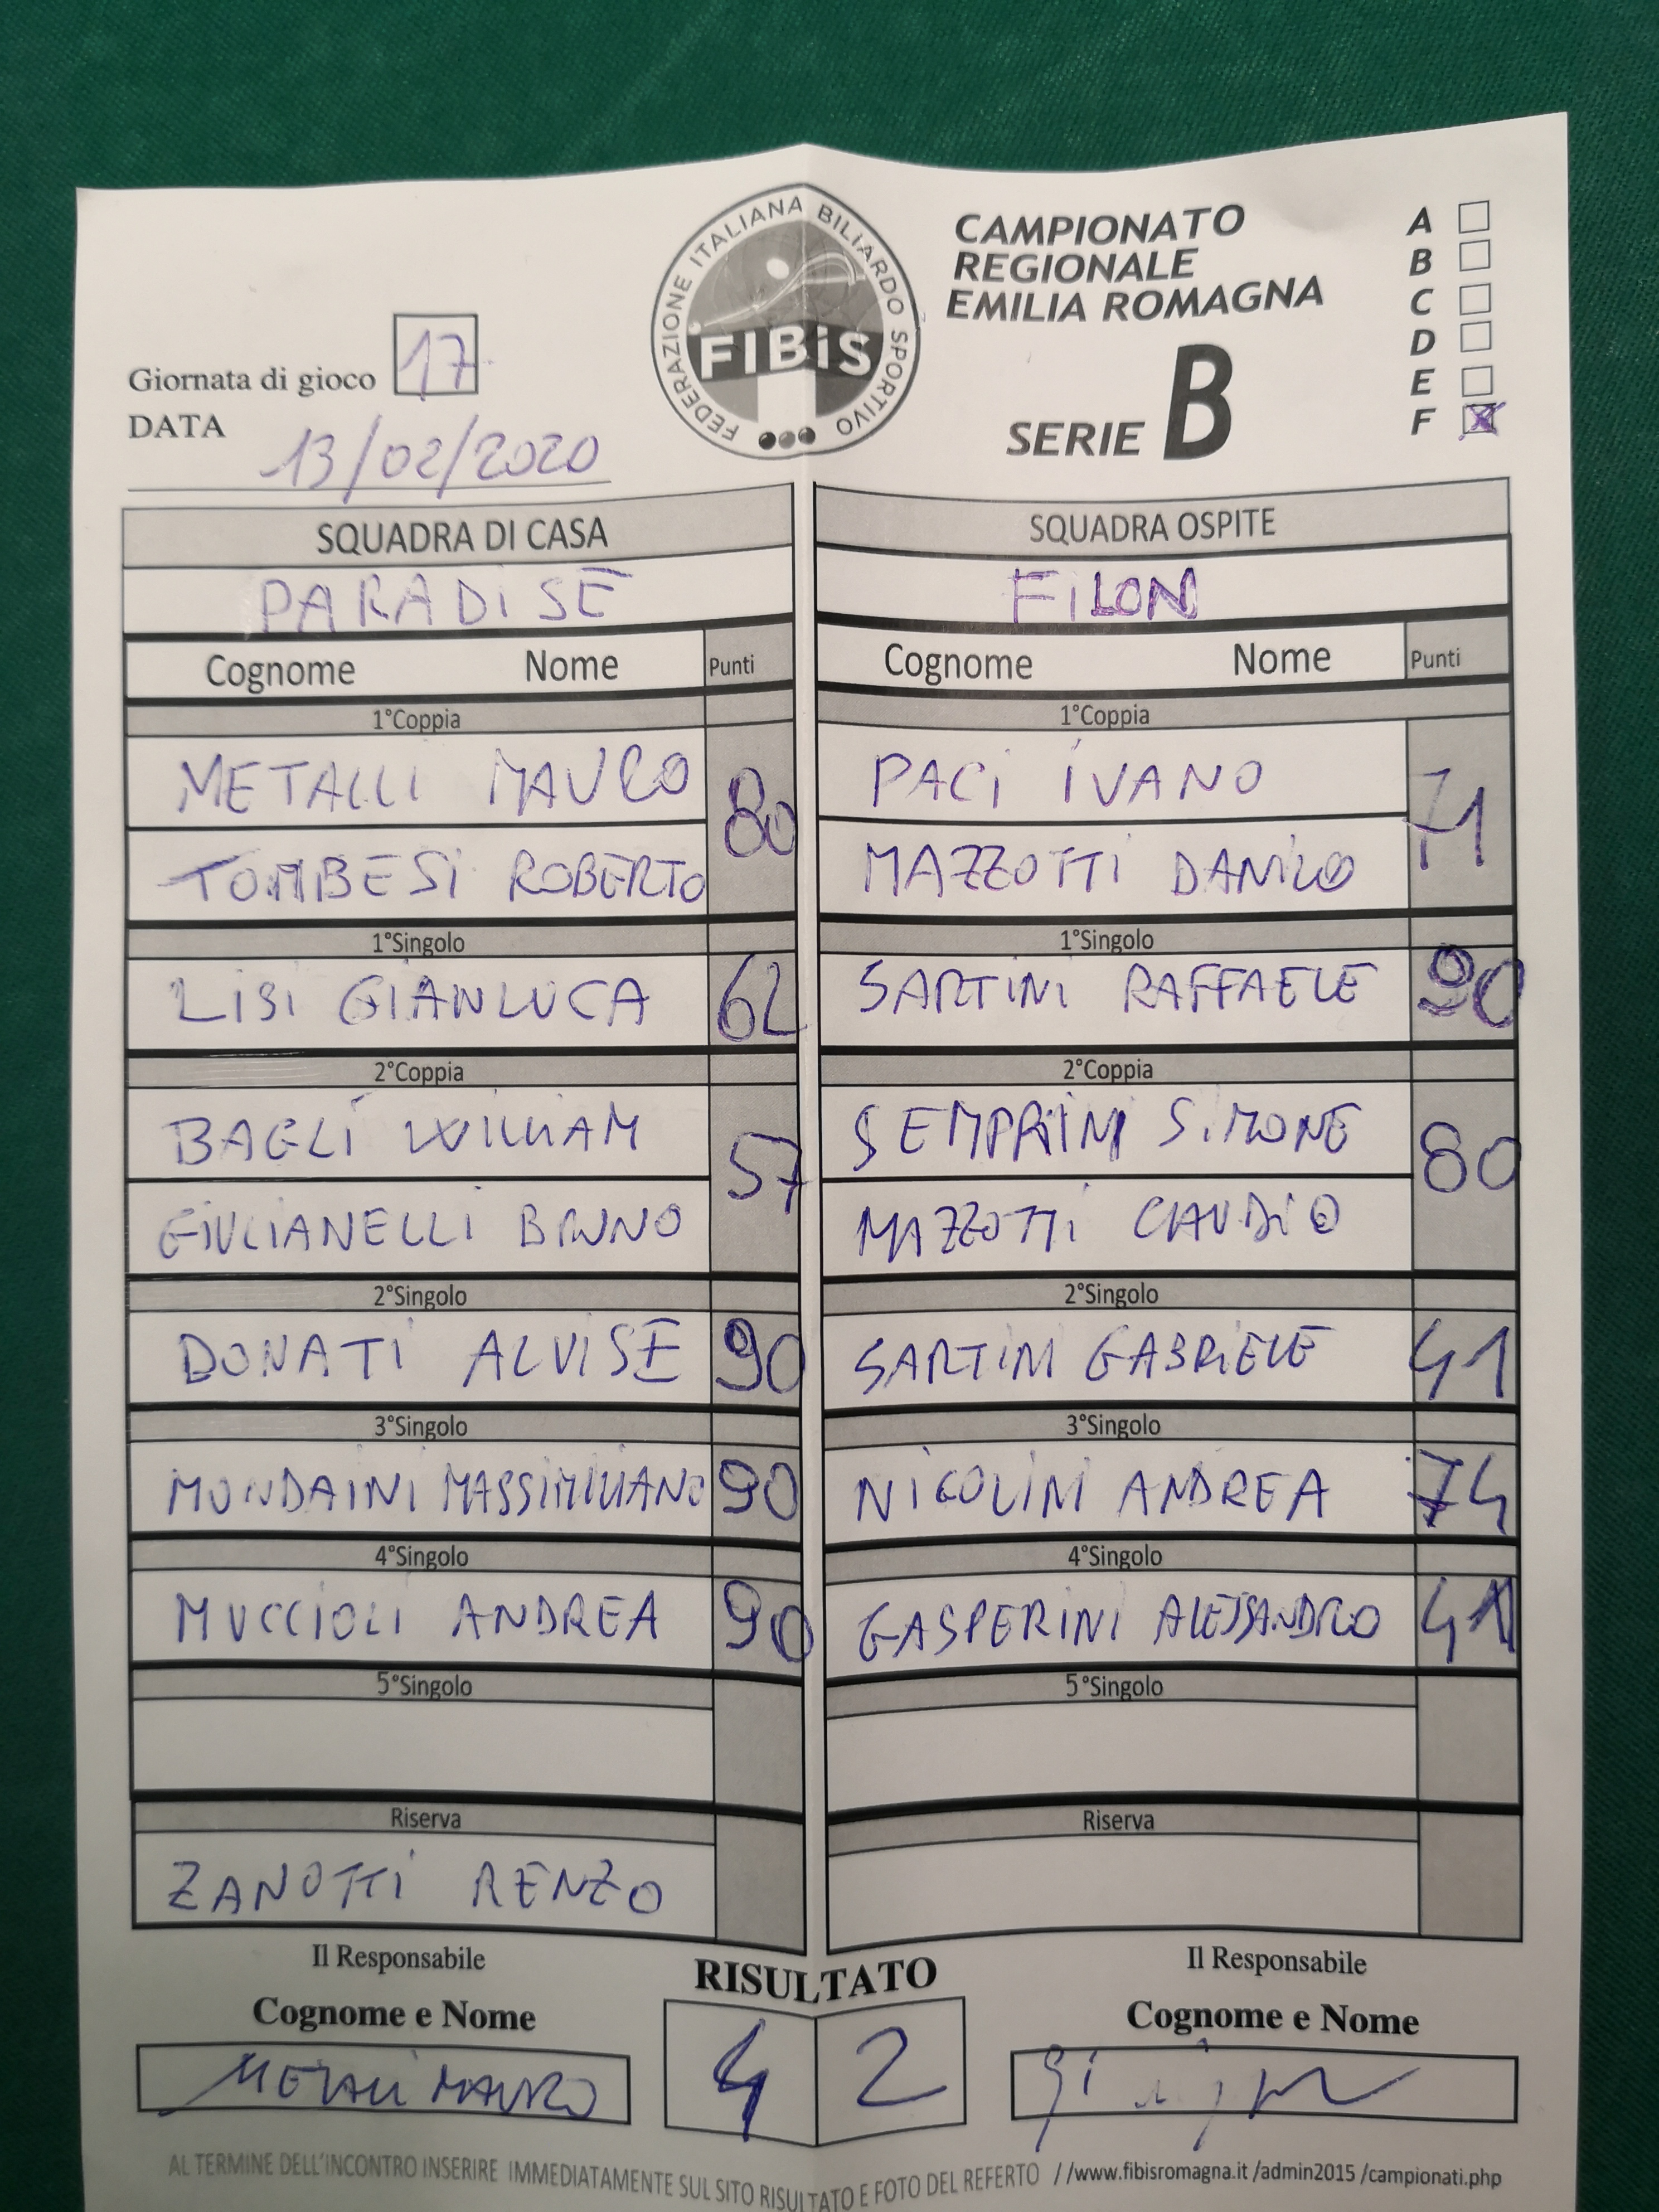 FEDERAZIONE ITALIANA BILIARDO SPORTIVO
FIBiS
CAMPIONATO
REGIONALE
EMILIA ROMAGNA
SERIE B
A
B
C
D
E
F X
Giornata di gioco 17
DATA 13/02/2020
SQUADRA DI CASA SQUADRA OSPITE
PARADiSE FiLON
Cognome Nome Punti Cognome Nome Punti
1°Coppia 1°Coppia
METALLI MAURO 80 PACi iVANO 71
TOMBESi ROBERTO MAZZOTTi DANiLO
1°Singolo 1°Singolo
LISI GIANLUCA 62 SARTiNi RAFFAELE 90
2°Coppia 2°Coppia
BAGLi WiLLiAM 57 SEMPRiNi SiMONE 80
GiULIANELLi BRUNO MAZZOTTi CLAUDiO
2°Singolo 2°Singolo
DONATi ALViSE 90 SARTiNi GABRiELE 41
3°Singolo 3°Singolo
MONDAiNi MASSiMiLiANO 90 NiCOLiNi ANDREA 74
4°Singolo 4°Singolo
MUCCiOLi ANDREA 90 GASPERiNi ALESSANDRO 41
5°Singolo 5°Singolo
Riserva Riserva
ZANOTTi RENZO
Il Responsabile RISULTATO Il Responsabile
Cognome e Nome 4 2 Cognome e Nome
METALLi MAURO
AL TERMINE DELL'INCONTRO INSERIRE IMMEDIATAMENTE SUL SITO RISULTATO E FOTO DEL REFERTO //www.fibisromagna.it /admin2015 /campionati.php